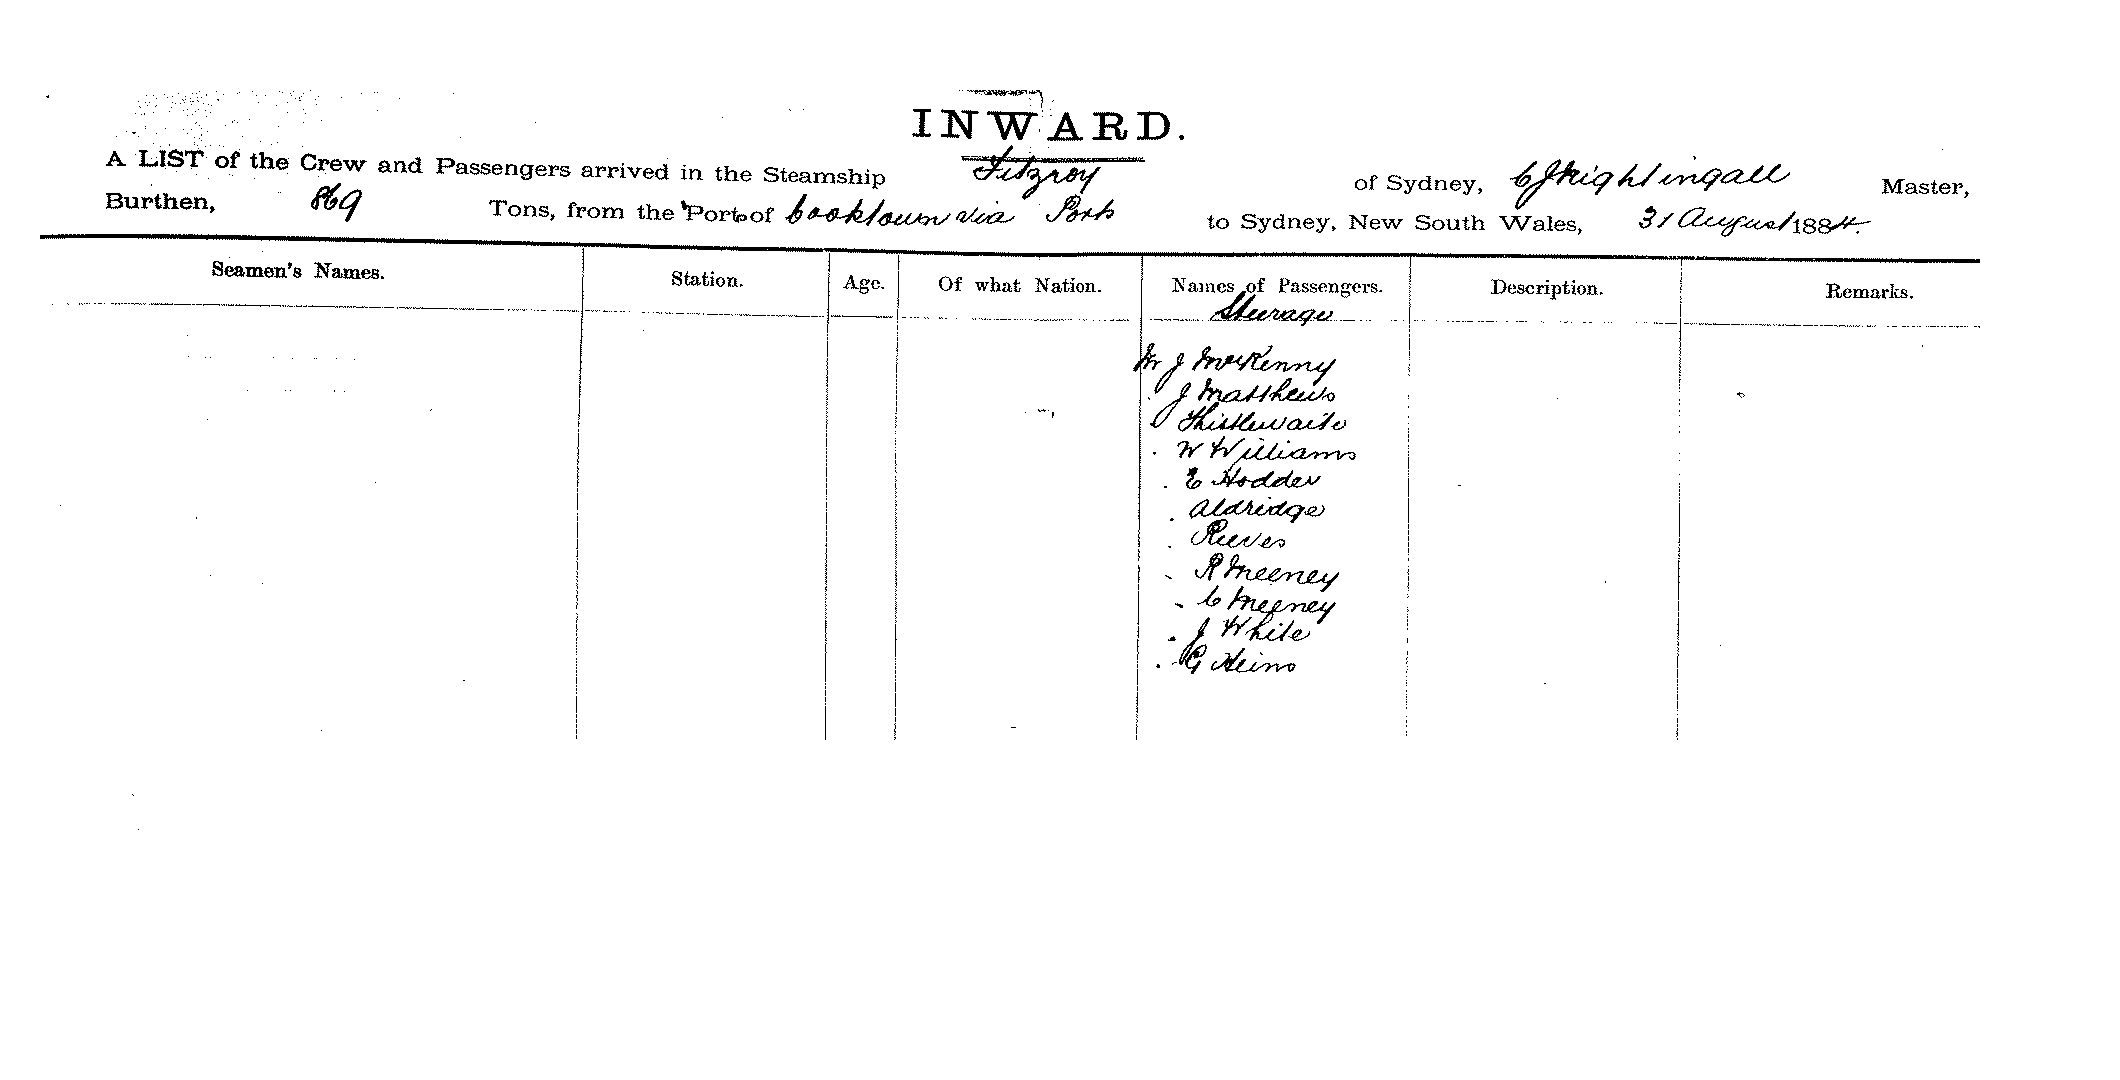 INWARD.
A LIST of the Crew and Passengers arrived in the Steamship Fitzroy of Sydney, C J Nightingall Master,
Burthen, 869 Tons, from the Port of Cooktown via Ports to Sydney, New South Wales, 31 August 1884.
Seamen's Names. Station. Age. Of what Nation. Names of Passengers. Description. Remarks.
Steerage
Mr J McKenny
. J Matthews
Thistlewaite
. W Williams
. E Hodder
. Aldridge
. Reeves
- R Meeney
- C Meeney
. J White
. G Heins